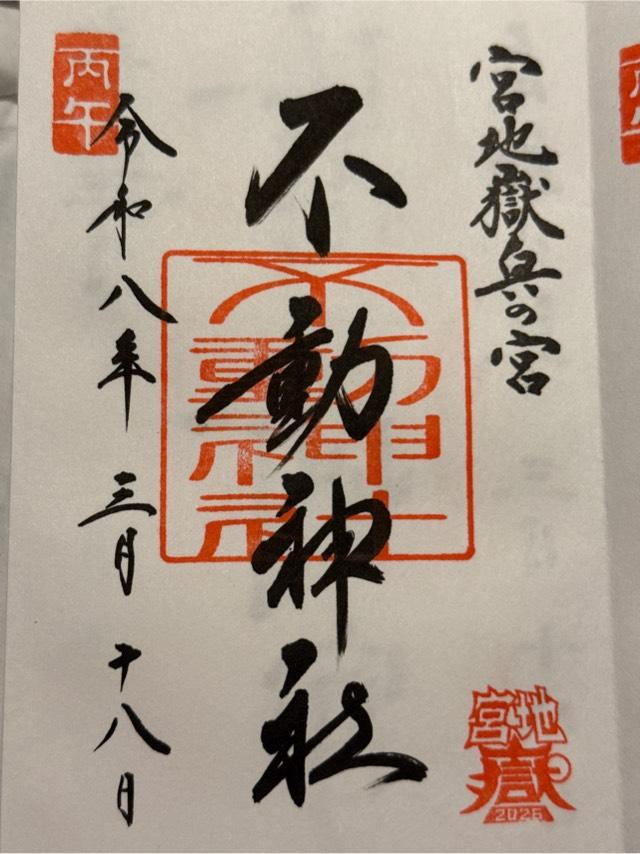 宮地嶽奥の宮
不動神社
不動神社
令和八年 三月 十八日
丙午
宮地
嶽
2026